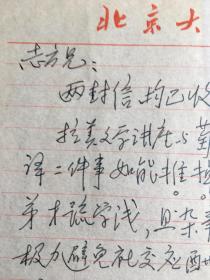 北京大
志方兄:
两封信均已收
拉美文学讲座与
译二件事如能推
弟才疏学浅,且杂
极力避免社交应酬